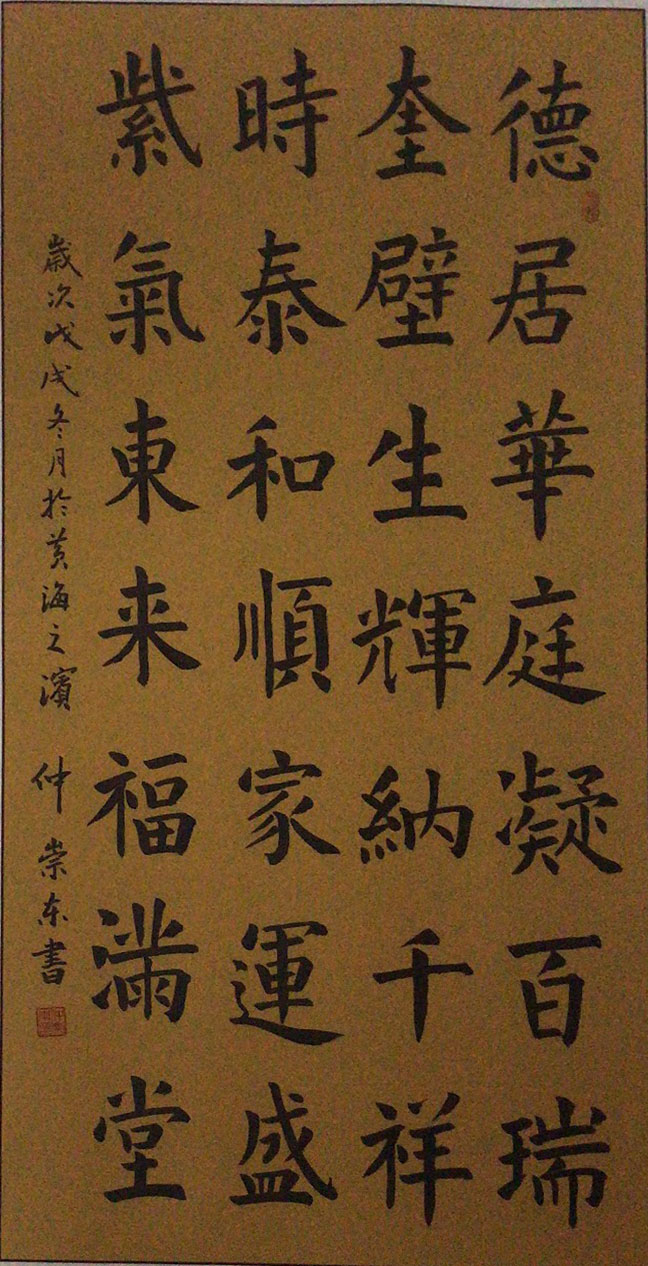 德居華庭凝百瑞
奎壁生輝納千祥
時泰和順家運盛
紫氣東来福滿堂
歲次戊戌冬月於黄海之濱 仲崇东書